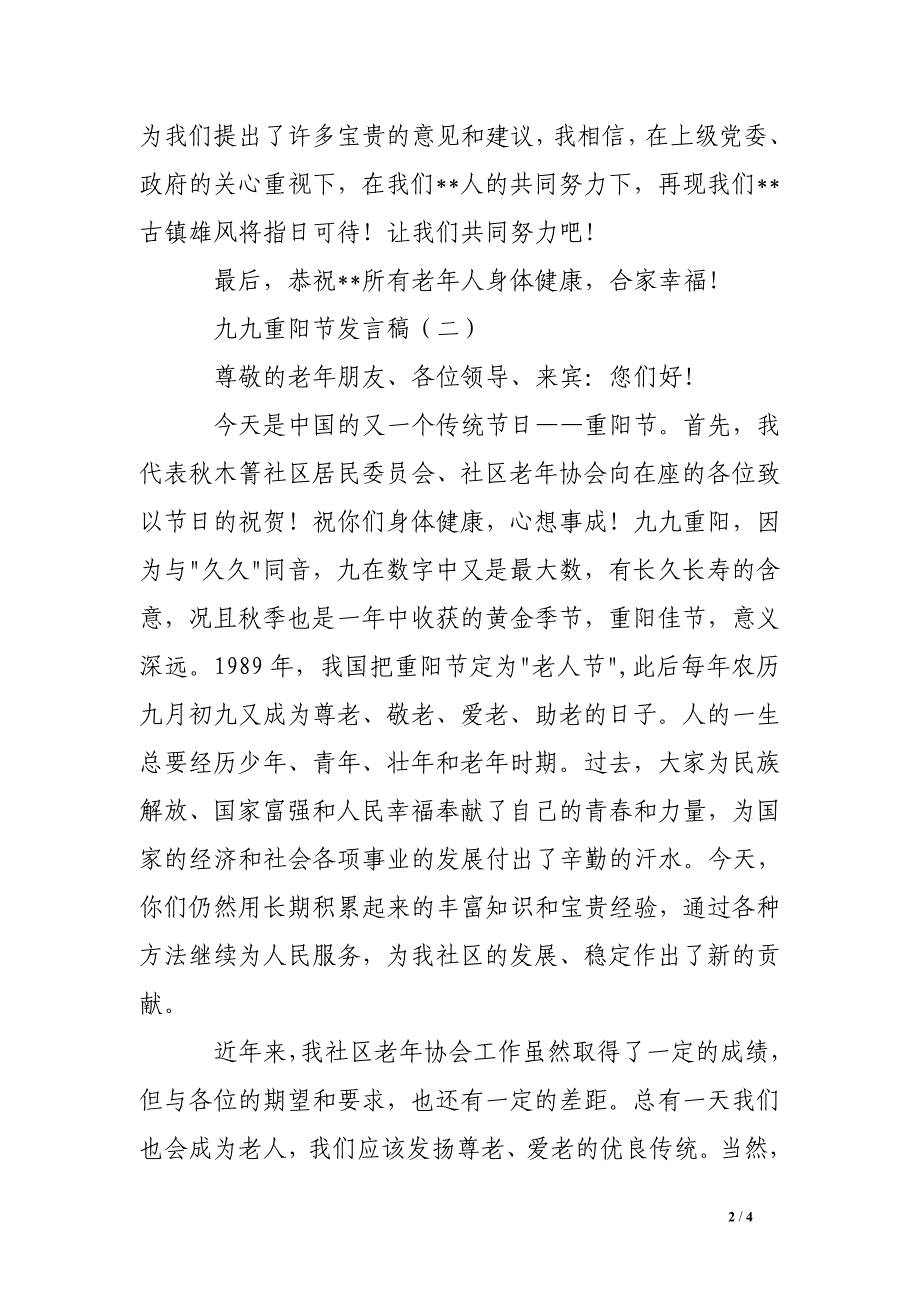 为我们提出了许多宝贵的意见和建议，我相信，在上级党委、
政府的关心重视下，在我们**人的共同努力下，再现我们**
古镇雄风将指日可待！让我们共同努力吧！
最后，恭祝**所有老年人身体健康，合家幸福！
九九重阳节发言稿（二）
尊敬的老年朋友、各位领导、来宾：您们好！
今天是中国的又一个传统节日——重阳节。首先，我
代表秋木箐社区居民委员会、社区老年协会向在座的各位致
以节日的祝贺！祝你们身体健康，心想事成！九九重阳，因
为与"久久"同音，九在数字中又是最大数，有长久长寿的含
意，况且秋季也是一年中收获的黄金季节，重阳佳节，意义
深远。1989 年，我国把重阳节定为"老人节",此后每年农历
九月初九又成为尊老、敬老、爱老、助老的日子。人的一生
总要经历少年、青年、壮年和老年时期。过去，大家为民族
解放、国家富强和人民幸福奉献了自己的青春和力量，为国
家的经济和社会各项事业的发展付出了辛勤的汗水。今天，
你们仍然用长期积累起来的丰富知识和宝贵经验，通过各种
方法继续为人民服务，为我社区的发展、稳定作出了新的贡
献。
近年来，我社区老年协会工作虽然取得了一定的成绩，
但与各位的期望和要求，也还有一定的差距。总有一天我们
也会成为老人，我们应该发扬尊老、爱老的优良传统。当然，
2 / 4